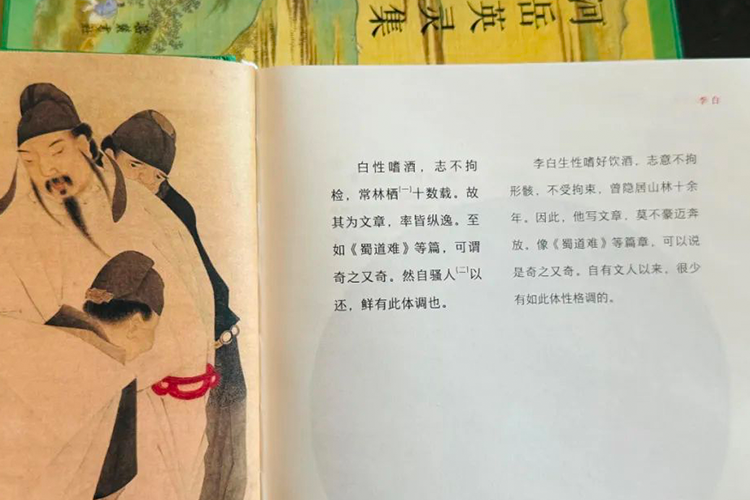 河岳英灵集
岳麓书社
李白
白性嗜酒，志不拘
检，常林栖[一]十数载。故
其为文章，率皆纵逸。至
如《蜀道难》等篇，可谓
奇之又奇。然自骚人[二]以
还，鲜有此体调也。
李白生性嗜好饮酒，志意不拘
形骸，不受拘束，曾隐居山林十余
年。因此，他写文章，莫不豪迈奔
放，像《蜀道难》等篇章，可以说
是奇之又奇。自有文人以来，很少
有如此体性格调的。